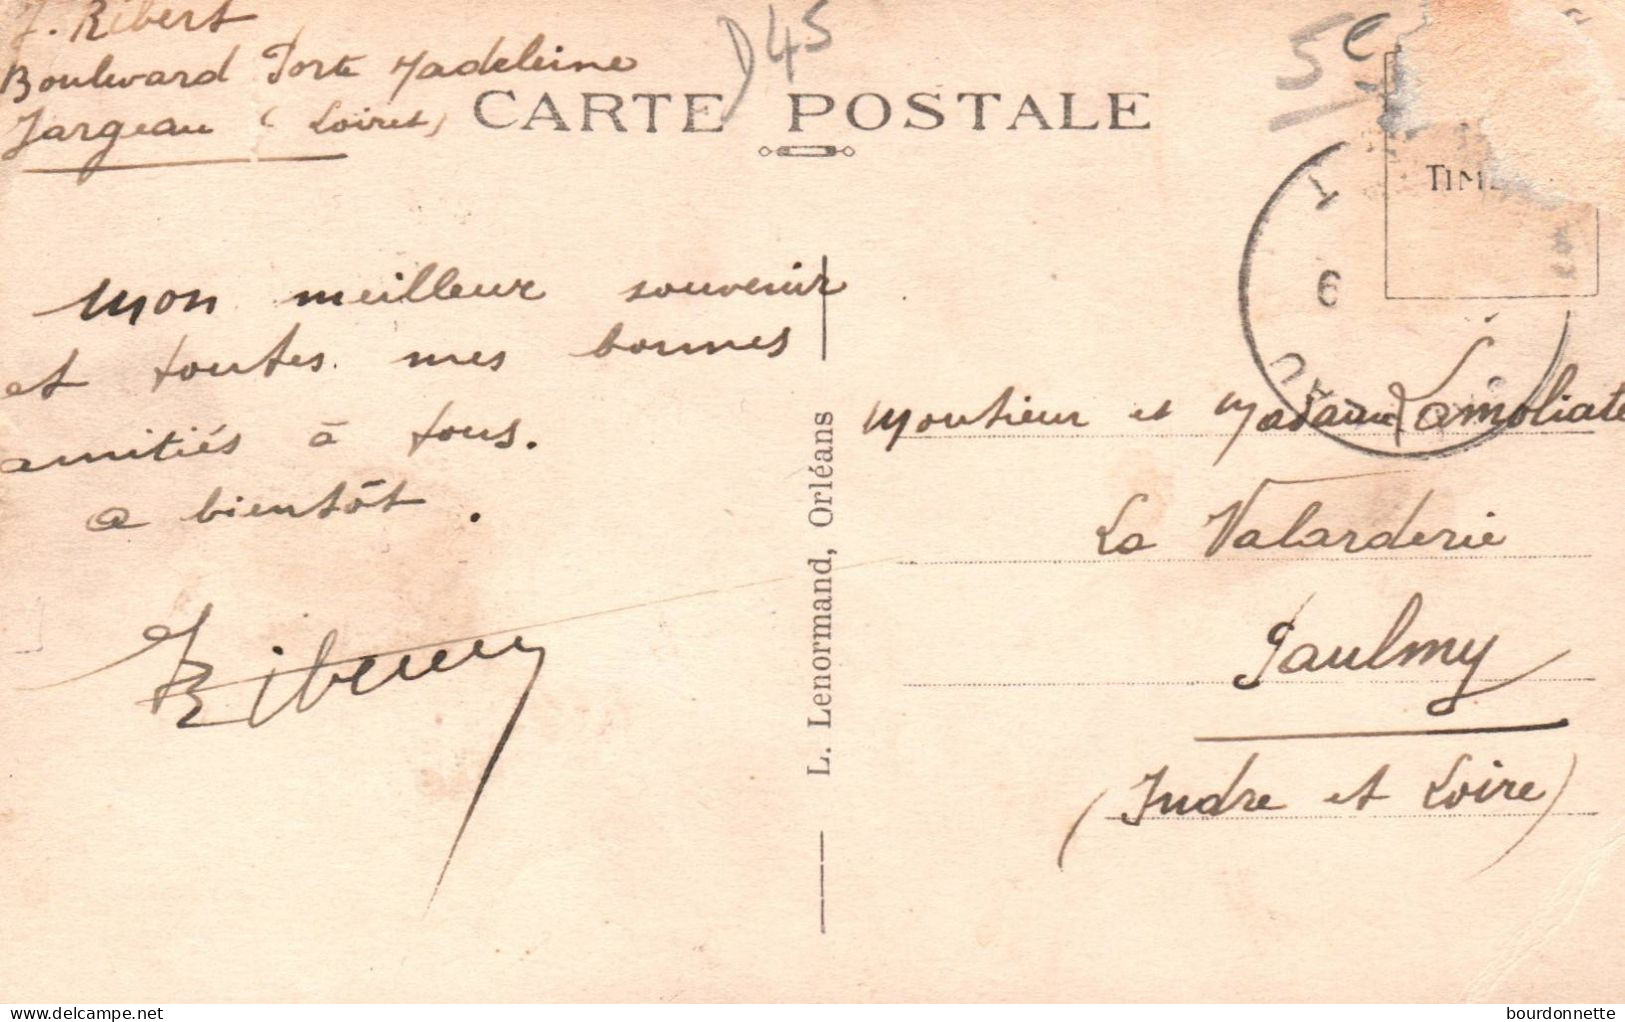 J. Ribert
Boulevard Porte Madeleine
Jargeau (Loiret)
D45
5e
CARTE POSTALE
TIM
6
AU
Mon meilleur souvenir
et toutes mes bonnes
amitiés à tous.
a bientôt.
L. Lenormand, Orléans
Monsieur et Madame Lamoliate
La Valarderie
Paulmy
(Indre et Loire)
delcampe.net
bourdonnette